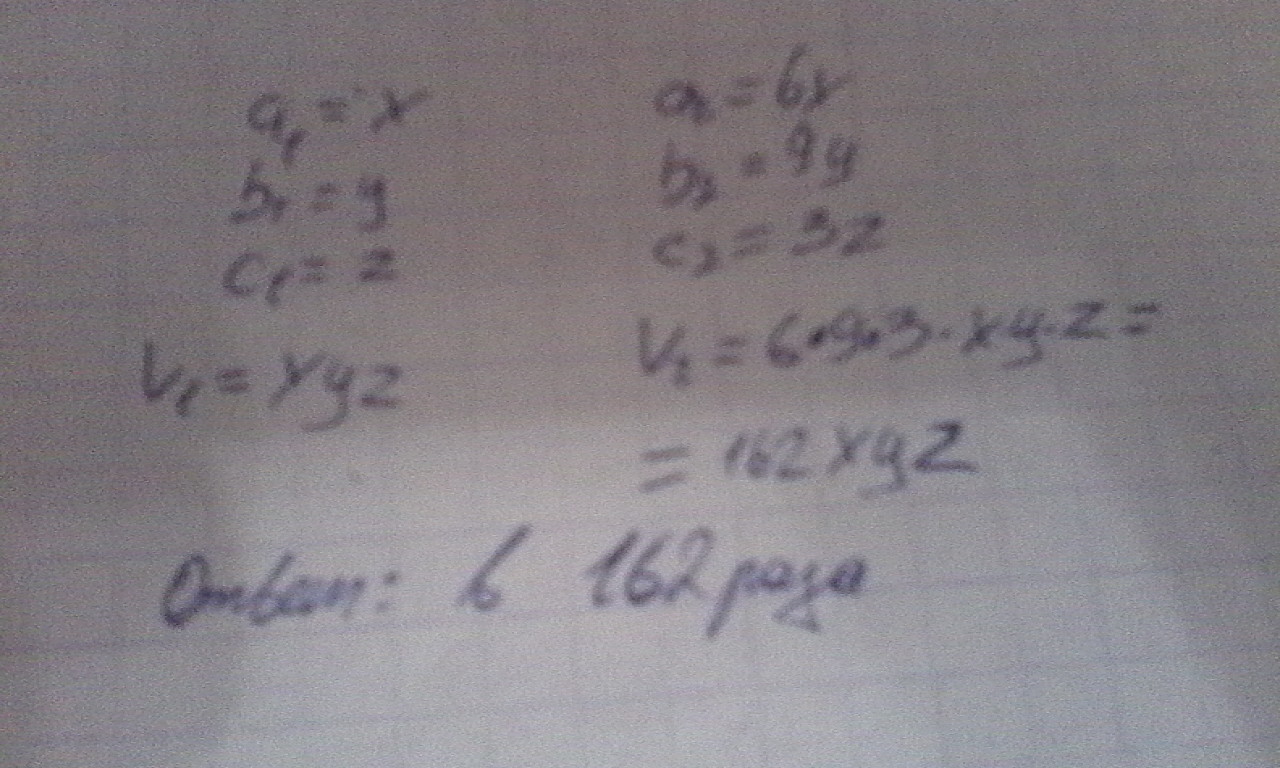 a₁ = x
b₁ = y
c₁ = z
V₁ = xyz
a₂ = 6x
b₂ = 9y
c₂ = 3z
V₂ = 6·9·3·xy·z =
= 162xyz
Ответ: в 162 раза